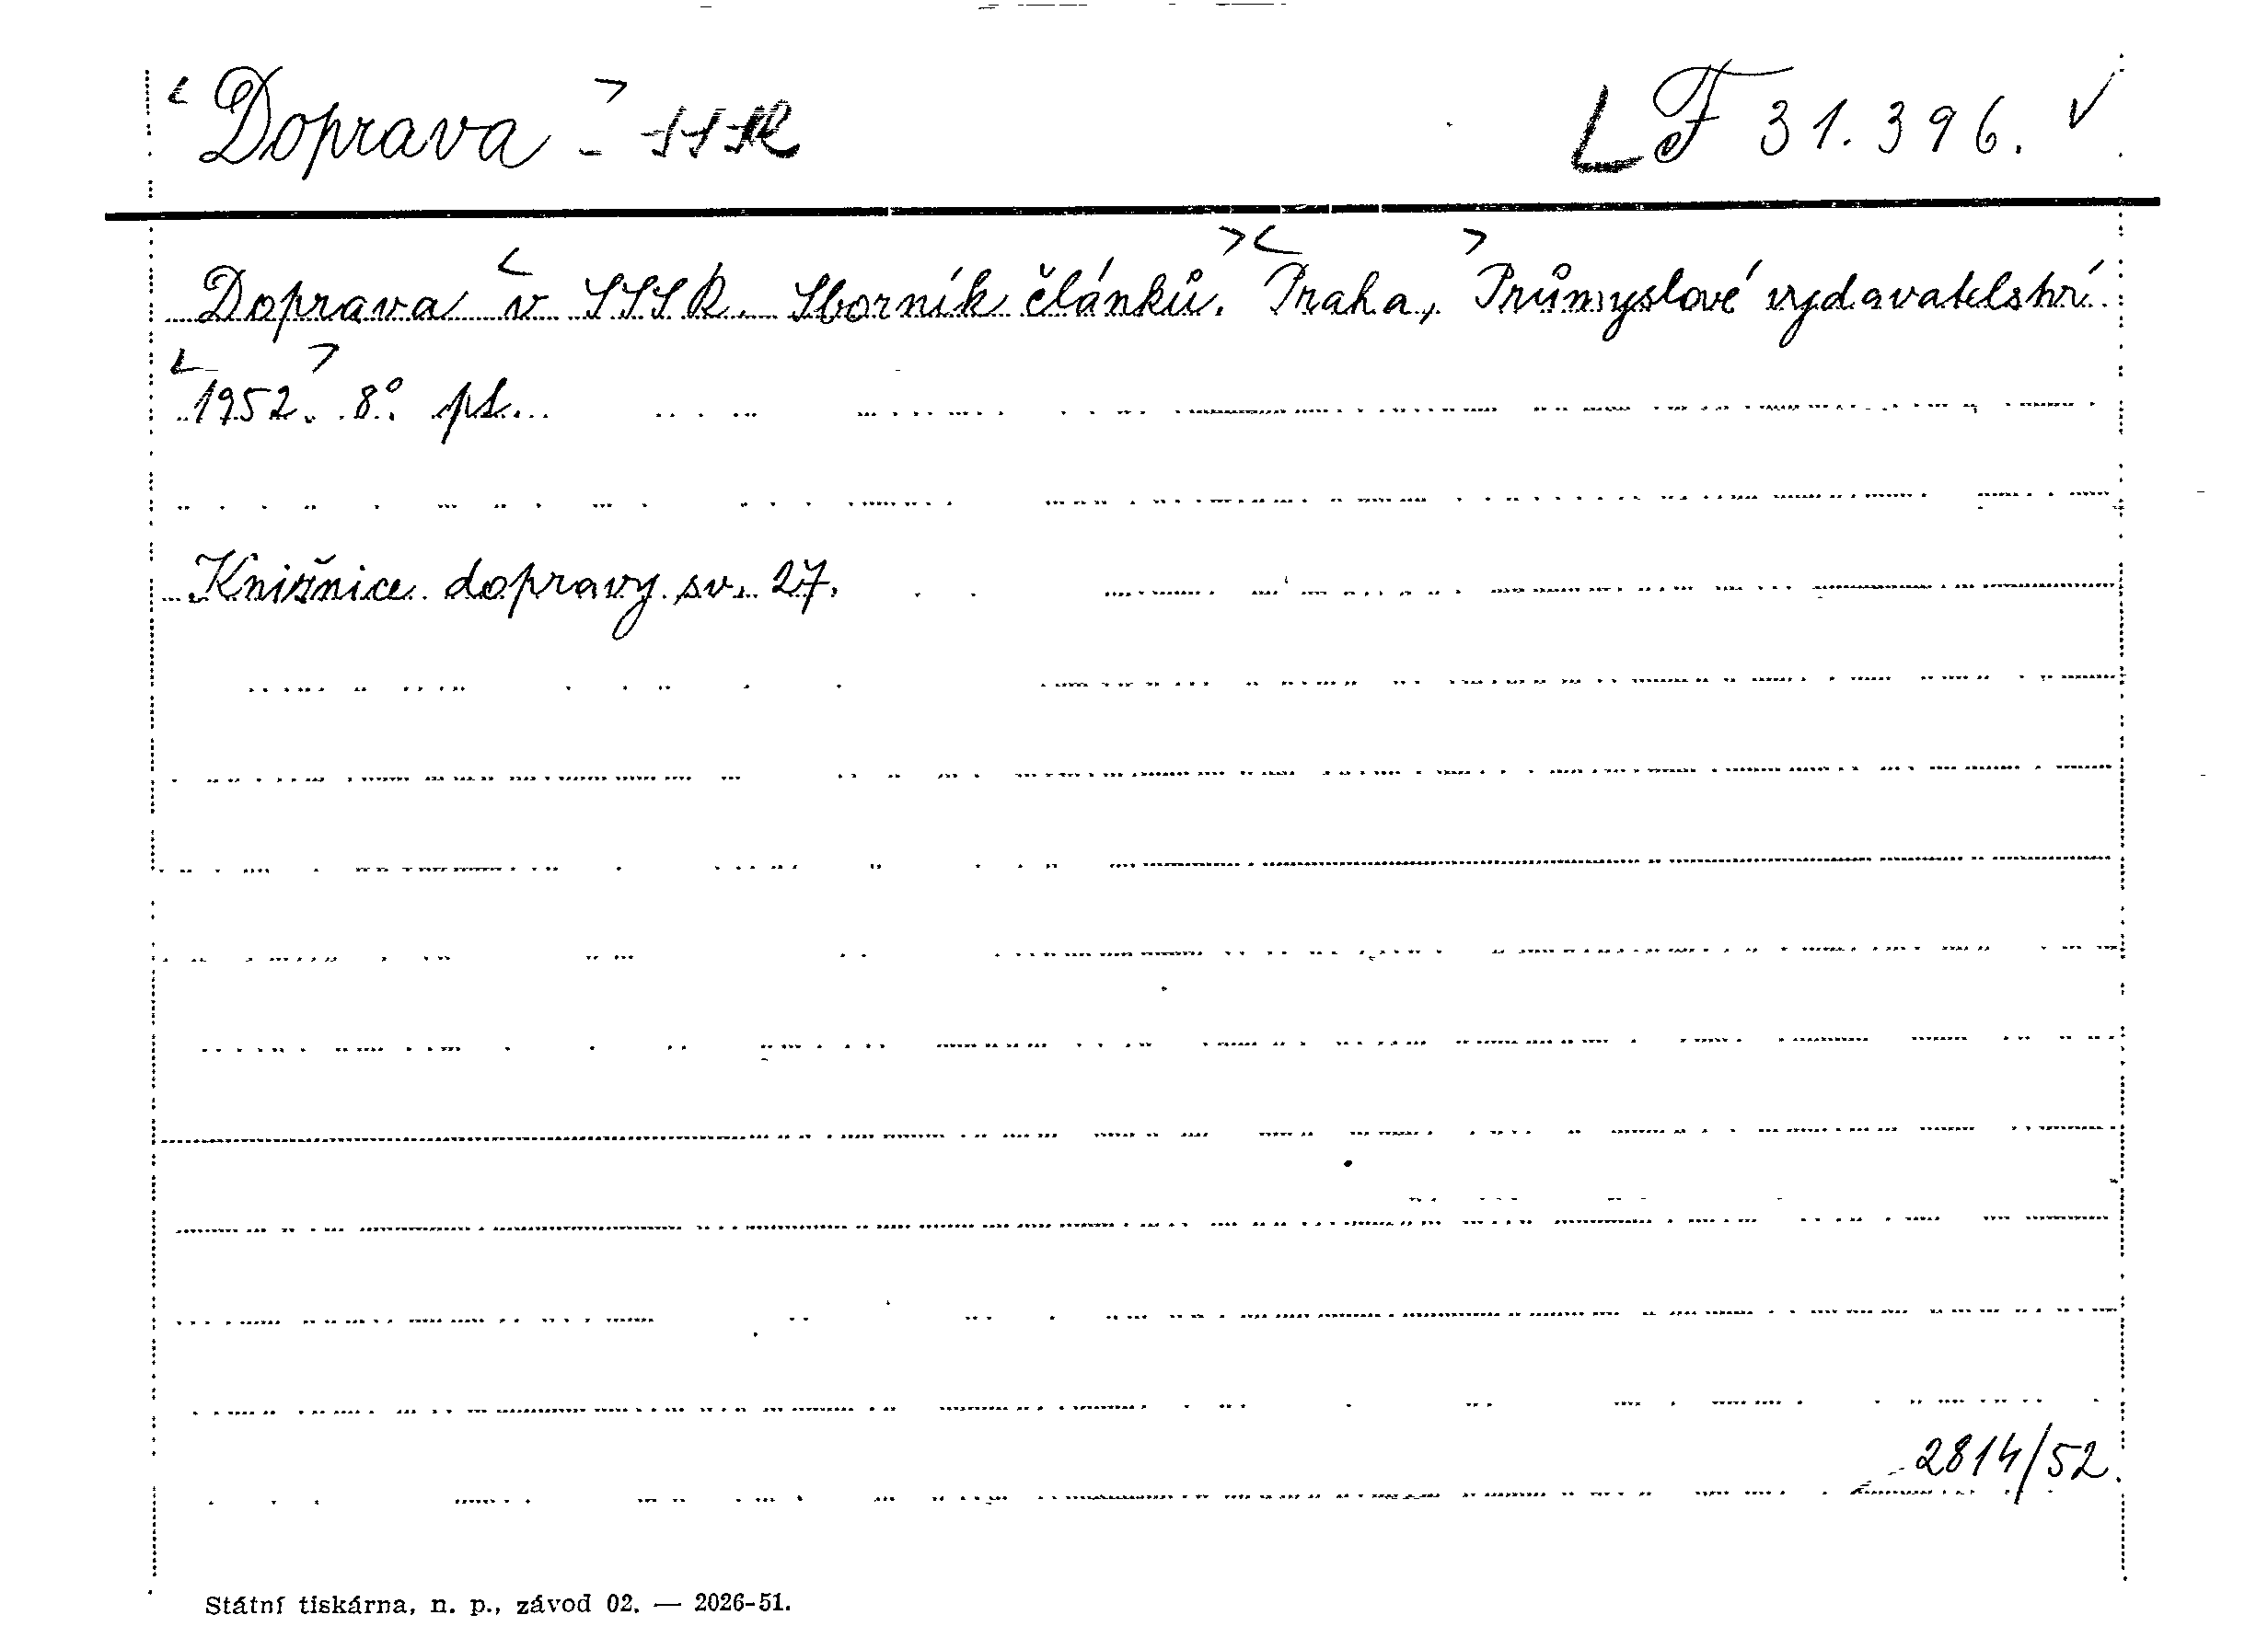 <Doprava> - SSSR LF 31.396. ✓
Doprava <v SSSR. Sborník článků.> <Praha,> Průmyslové vydavatelství
<1952.> 8°. pl.
Knižnice dopravy sv. 27.
2814/52.
Státní tiskárna, n. p., závod 02. — 2026-51.